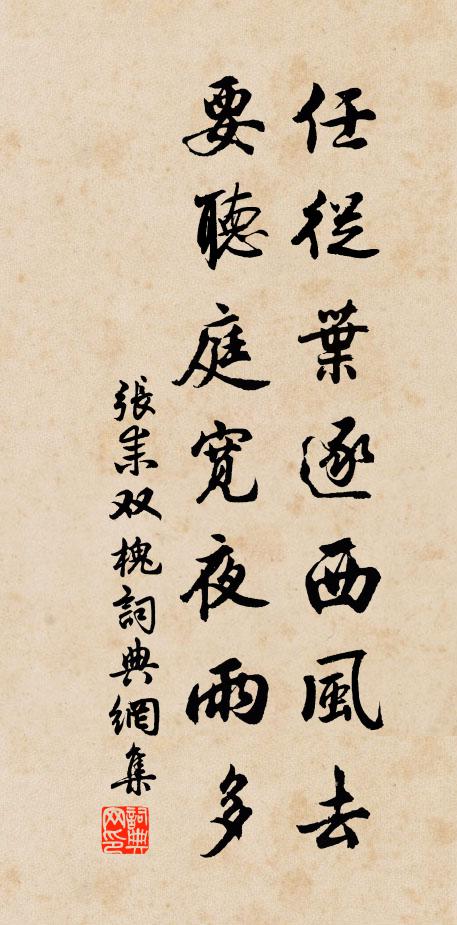 任從葉逐西風去
要聽庭寬夜雨多
張耒双槐詞典網集
詞典網印